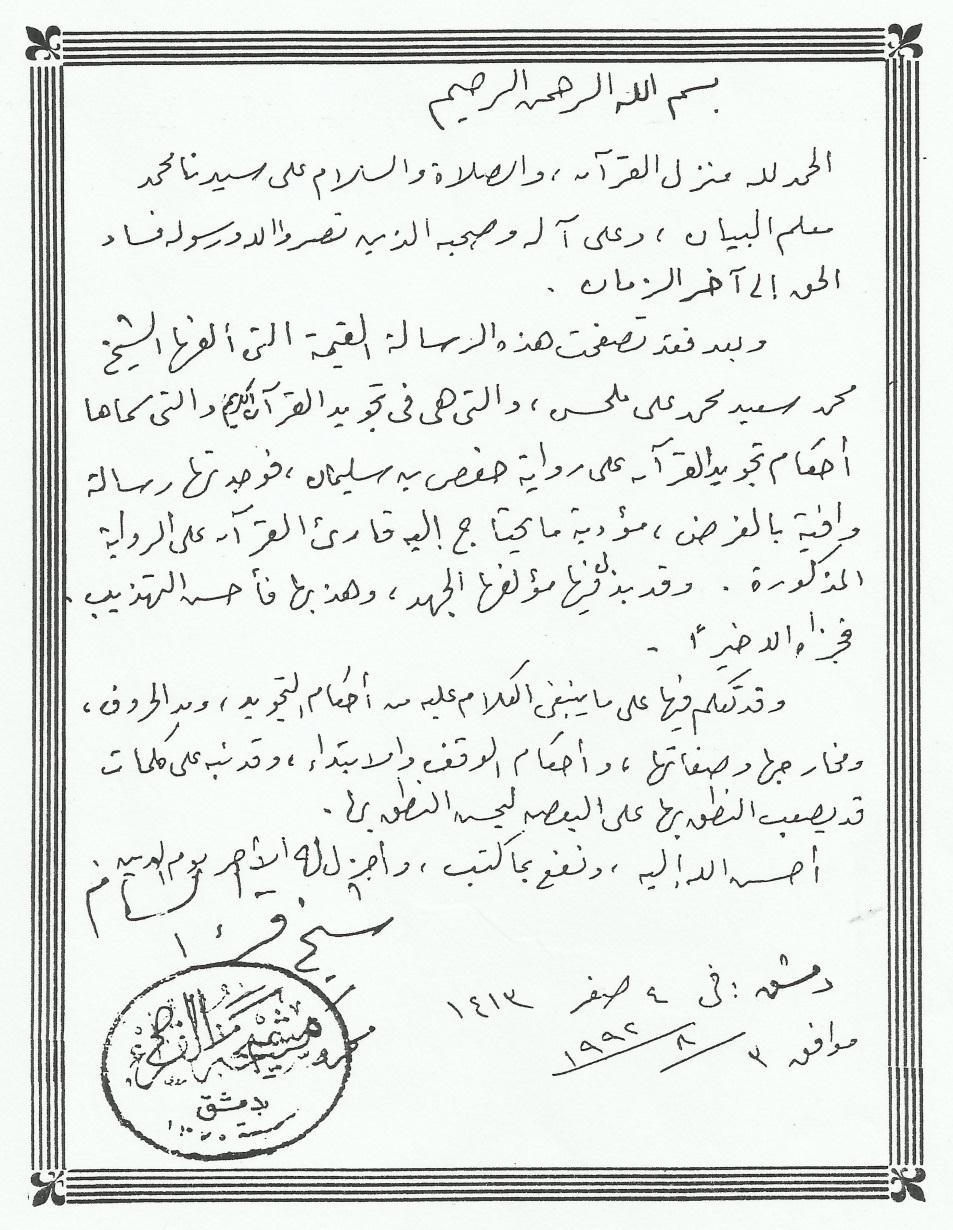 بسم الله الرحمن الرحيم
الحمد لله منزل القرآن ، والصلاة والسلام على سيدنا محمد
معلم البيان ، وعلى آله وصحبه الذين نصروا الله ورسوله فساد
الحق إلى آخر الزمان .
وبعد فقد تصفحت هذه الرسالة القيمة التي ألفها الشيخ
محمد سعيد محمد علي ملحس ، والتي هي في تجويد القرآن الكريم والتي سماها
أحكام تجويد القرآن على رواية حفص بن سليمان ، فوجدتها رسالة
وافية بالغرض ، مؤدية ما يحتاج إليه قارئ القرآن على الرواية
المذكورة . وقد بذل فيها مؤلفها الجهد ، وهذبها فأحسن التهذيب .
فجزاه الله خيرًا .
وقد تكلم فيها على ما ينبغي الكلام عليه من أحكام التجويد ، ومد الحروف ،
ومخارجها وصفاتها ، وأحكام الوقف والابتداء ، وقد نبه على كلمات
قد يصعب النطق بها على البعض ليحسن النطق بها .
أحسن الله إليه ، ونفع بما كتب ، وأجزل له الأجر يوم الدين
شيخ قراء الشام
دمشق : في ٤ صفر ١٤١٣
موافق ٣ / ٨ / ١٩٩٢
مشيخة
بدمشق